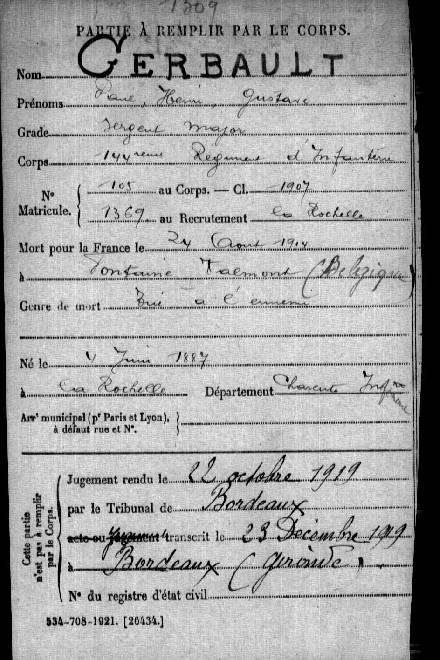 1309
PARTIE À REMPLIR PAR LE CORPS.
Nom CERBAULT
Prénoms Paul, Henri, Gustave
Grade Sergent Major
Corps 144eme Régiment d'Infanterie
N° Matricule. 105 au Corps. — Cl. 1907
1369 au Recrutement La Rochelle
Mort pour la France le 24 Août 1914
à Fontaine Valmont (Belgique)
Genre de mort Tué à l'ennemi
Né le 4 Juin 1887
à La Rochelle Département Charente Infre
Arrt municipal (pr Paris et Lyon), à défaut rue et N°.
Cette partie n'est pas à remplir par le Corps.
Jugement rendu le 22 octobre 1919
par le Tribunal de Bordeaux
acte ou jugement transcrit le 23 Décembre 1919
à Bordeaux (Gironde)
N° du registre d'état civil
534-708-1921. [26434.]